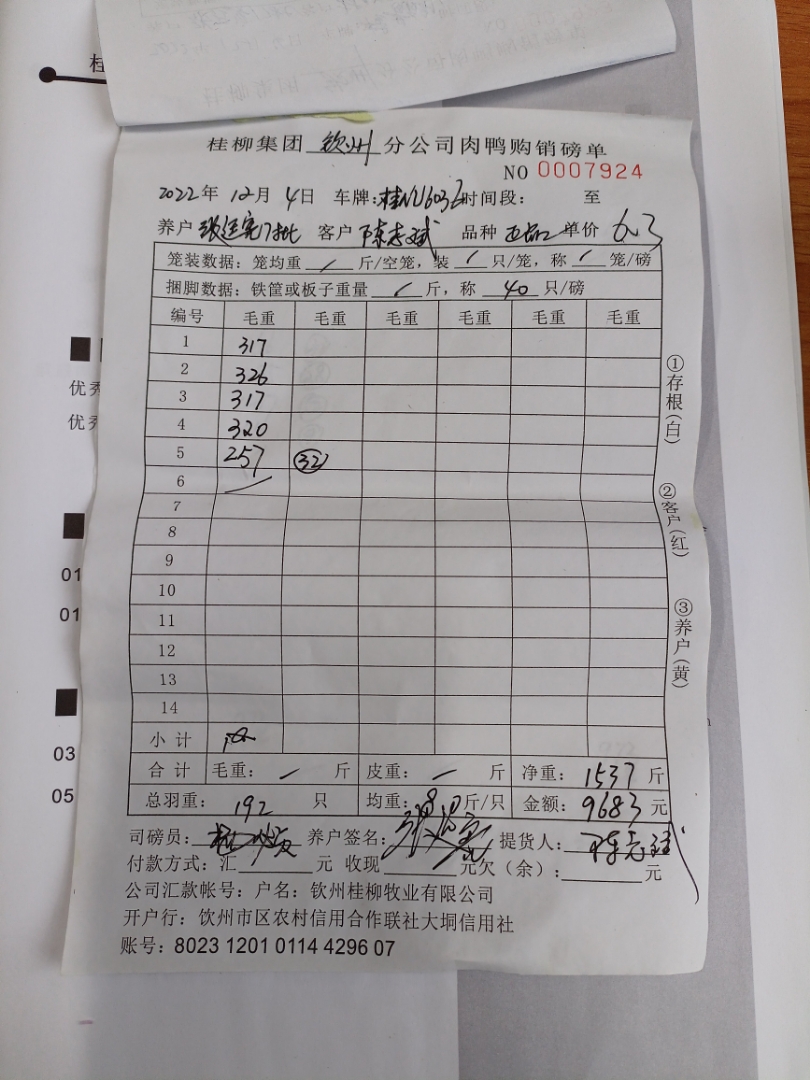 桂柳集团 钦州 分公司肉鸭购销磅单
NO 0007924
2022年 12月 4日 车牌:桂N 时间段: 至
养户 客户 陈 斌 品种 正品 单价 6.3
笼装数据: 笼均重 / 斤/空笼, 装 / 只/笼, 称 / 笼/磅
捆脚数据: 铁筐或板子重量 / 斤, 称 40 只/磅
编号 毛重 毛重 毛重 毛重 毛重 毛重
1 317
2 326
3 317
4 320
5 257 32
6
7
8
9
10
11
12
13
14
小计
合计 毛重: 斤 皮重: 斤 净重: 1537 斤
总羽重: 192 只 均重: 8.0 斤/只 金额: 9683 元
司磅员: 养户签名: 提货人:
付款方式: 汇 元 收现 元 欠(余): 元
公司汇款帐号: 户名: 钦州桂柳牧业有限公司
开户行: 钦州市区农村信用合作联社大垌信用社
账号: 8023 1201 0114 4296 07
①存根(白)
②客户(红)
③养户(黄)
桂
优秀
优秀
01
01
03
05